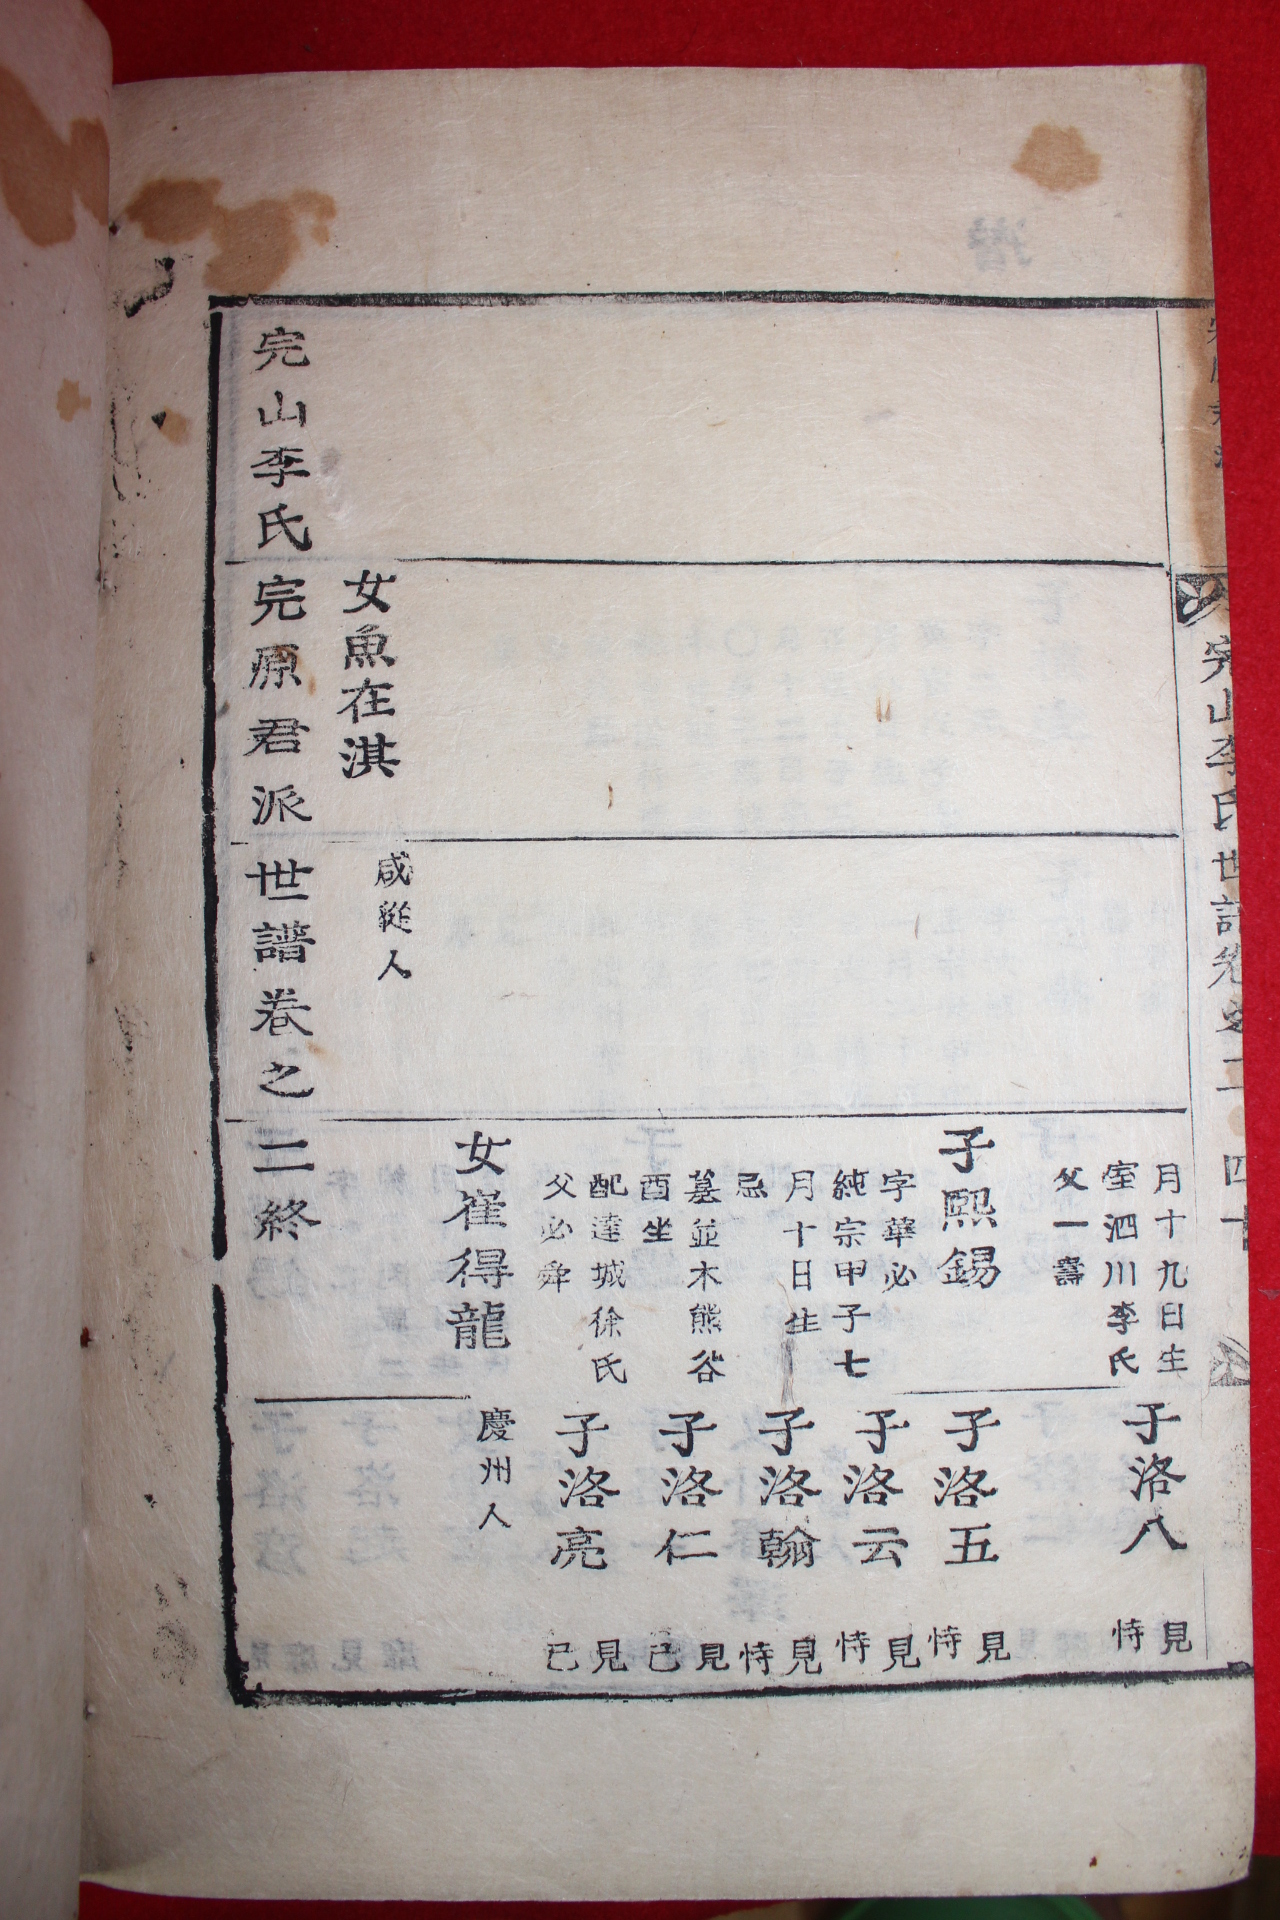 完山李氏世譜卷之二 四十
月十九日生
室泗川李氏
父一壽
子熙錫
字華必
純宗甲子七
月十日生
忌
墓並木熊谷
酉坐
配達城徐氏
父必舜
女崔得龍
子洛八
見
恃
子洛五
見
恃
子洛云
見
恃
子洛翰
見
恃
子洛仁
見
己
子洛亮
見
己
慶州人
女魚在淇
咸從人
完山李氏完原君派世譜卷之二終